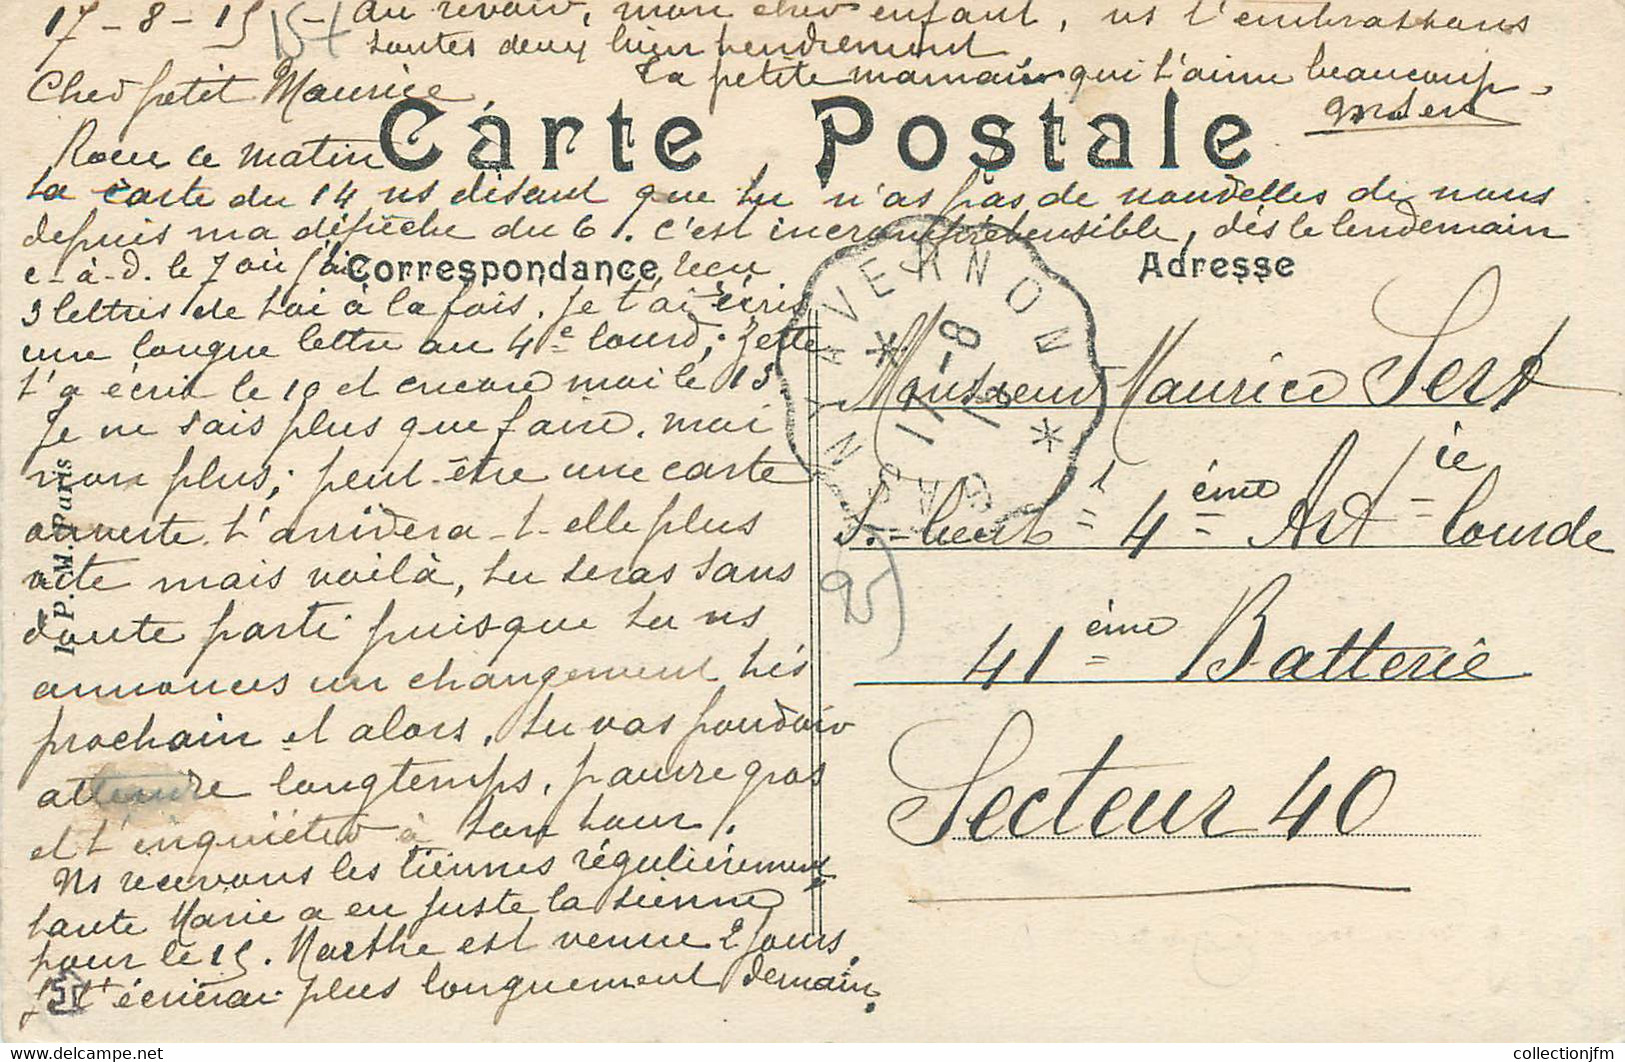 17-8-15
Cher petit Maurice
Reçu ce matin
ta carte du 14 ns disant que tu n'as pas de nouvelles de nous
depuis ma dépêche du 6. C'est incompréhensible, dès le lendemain
c-à-d. le 7 où j'ai reçu
3 lettres de toi à la fois. Je t'ai écris
une longue lettre au 4e lourd;
t'a écrit le 10 et encore moi le 13
Je ne sais plus que faire. moi
non plus; peut-être une carte
ouverte t'arrivera-t-elle plus
vite mais voilà, tu seras sans
doute parti puisque tu ns
annonces un changement très
prochain et alors, tu vas pouvoir
attendre longtemps, pauvre gros
et t'inquiéter à ton tour.
Ns recevons les tiennes régulièrement
tante Marie a eu juste la sienne
pour le 15. Marthe est venue 2 jours.
Je t'écrirai plus longuement demain.
Au revoir, mon cher enfant, ns t'embrassons
toutes deux bien tendrement
Ta petite maman qui t'aime beaucoup.
Sert
Carte Postale
Correspondance
Adresse
Monsieur Maurice Sert
S.-Lieut 4ème Artie lourde
41ème Batterie
Secteur 40
17-8
P. W. Paris
collectionjfm